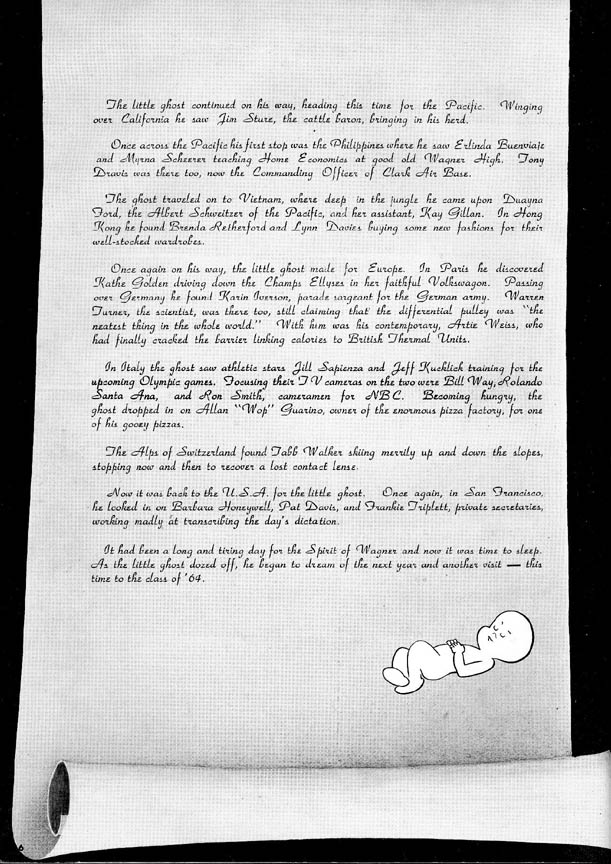 The little ghost continued on his way, heading this time for the Pacific. Winging
over California he saw Jim Sture, the cattle baron, bringing in his herd.
Once across the Pacific his first stop was the Philippines where he saw Erlinda Buenviaje
and Myrna Scheerer teaching Home Economics at good old Wagner High. Tony
Dravis was there too, now the Commanding Officer of Clark Air Base.
The ghost traveled on to Vietnam, where deep in the jungle he came upon Duayna
Ford, the Albert Schweitzer of the Pacific, and her assistant, Kay Gillan. In Hong
Kong he found Brenda Retherford and Lynn Davies buying some new fashions for their
well-stocked wardrobes.
Once again on his way, the little ghost made for Europe. In Paris he discovered
Kathe Golden driving down the Champs Ellyses in her faithful Volkswagon. Passing
over Germany he found Karin Iverson, parade sargeant for the German army. Warren
Turner, the scientist, was there too, still claiming that the differential pulley was "the
neatest thing in the whole world." With him was his contemporary, Artie Weiss, who
had finally cracked the barrier linking calories to British Thermal Units.
In Italy the ghost saw athletic stars Jill Sapienza and Jeff Kucklick training for the
upcoming Olympic games. Focusing their TV cameras on the two were Bill Way, Rolando
Santa Ana, and Ron Smith, cameramen for NBC. Becoming hungry, the
ghost dropped in on Allan "Wop" Guarino, owner of the enormous pizza factory, for one
of his gooey pizzas.
The Alps of Switzerland found Tabb Walker skiing merrily up and down the slopes,
stopping now and then to recover a lost contact lense.
Now it was back to the U.S.A. for the little ghost. Once again, in San Francisco,
he looked in on Barbara Honeywell, Pat Davis, and Frankie Triplett, private secretaries,
working madly at transcribing the day's dictation.
It had been a long and tiring day for the Spirit of Wagner and now it was time to sleep.
As the little ghost dozed off, he began to dream of the next year and another visit — this
time to the class of '64.
6